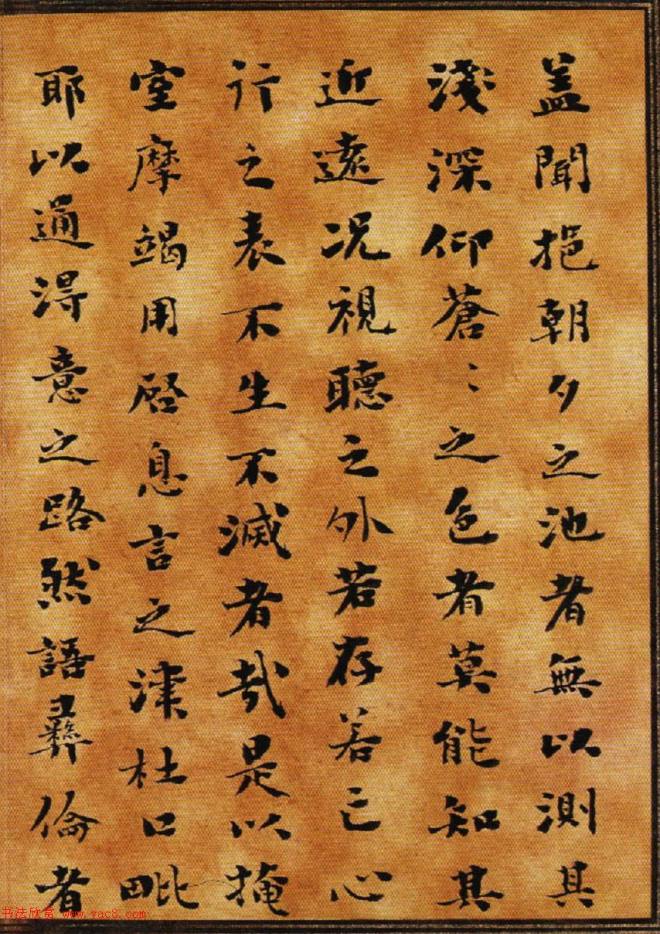 盖聞挹朝夕之池者無以測其
淺深仰蒼〻之色者莫能知其
近遠况視聽之外若存若亡心
行之表不生不滅者哉是以掩
室摩竭用啓息言之津杜口毗
耶以通得意之路然語彝倫者
书法欣赏 www.yac8.com